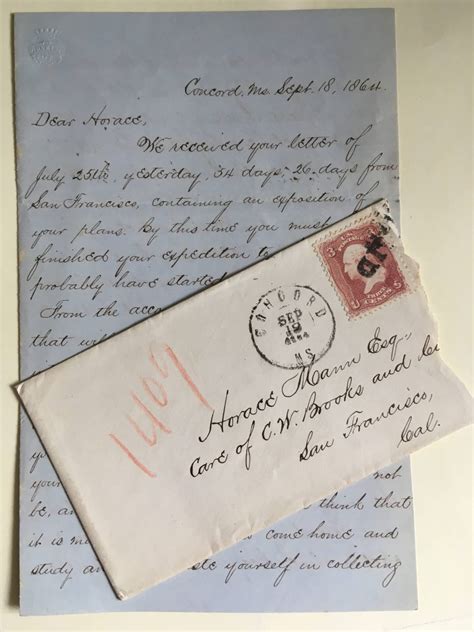 Concord, Ms. Sept. 18, 1864.
Dear Horace,
We received your letter of
July 25th, yesterday, 54 days, 26 days from
San Francisco, containing an exposition of
your plans. By this time you must
finished your expedition to
probably have started
From the acco
that w
your
not
be, an think that
it is m come home and
study an te yourself in collecting
U.S. POSTAGE
3 3
THREE CENTS
CONCORD
SEP
19
1864
MS.
1409
Horace Mann Esq.
Care of C.W. Brooks and
San Francisco,
Cal.